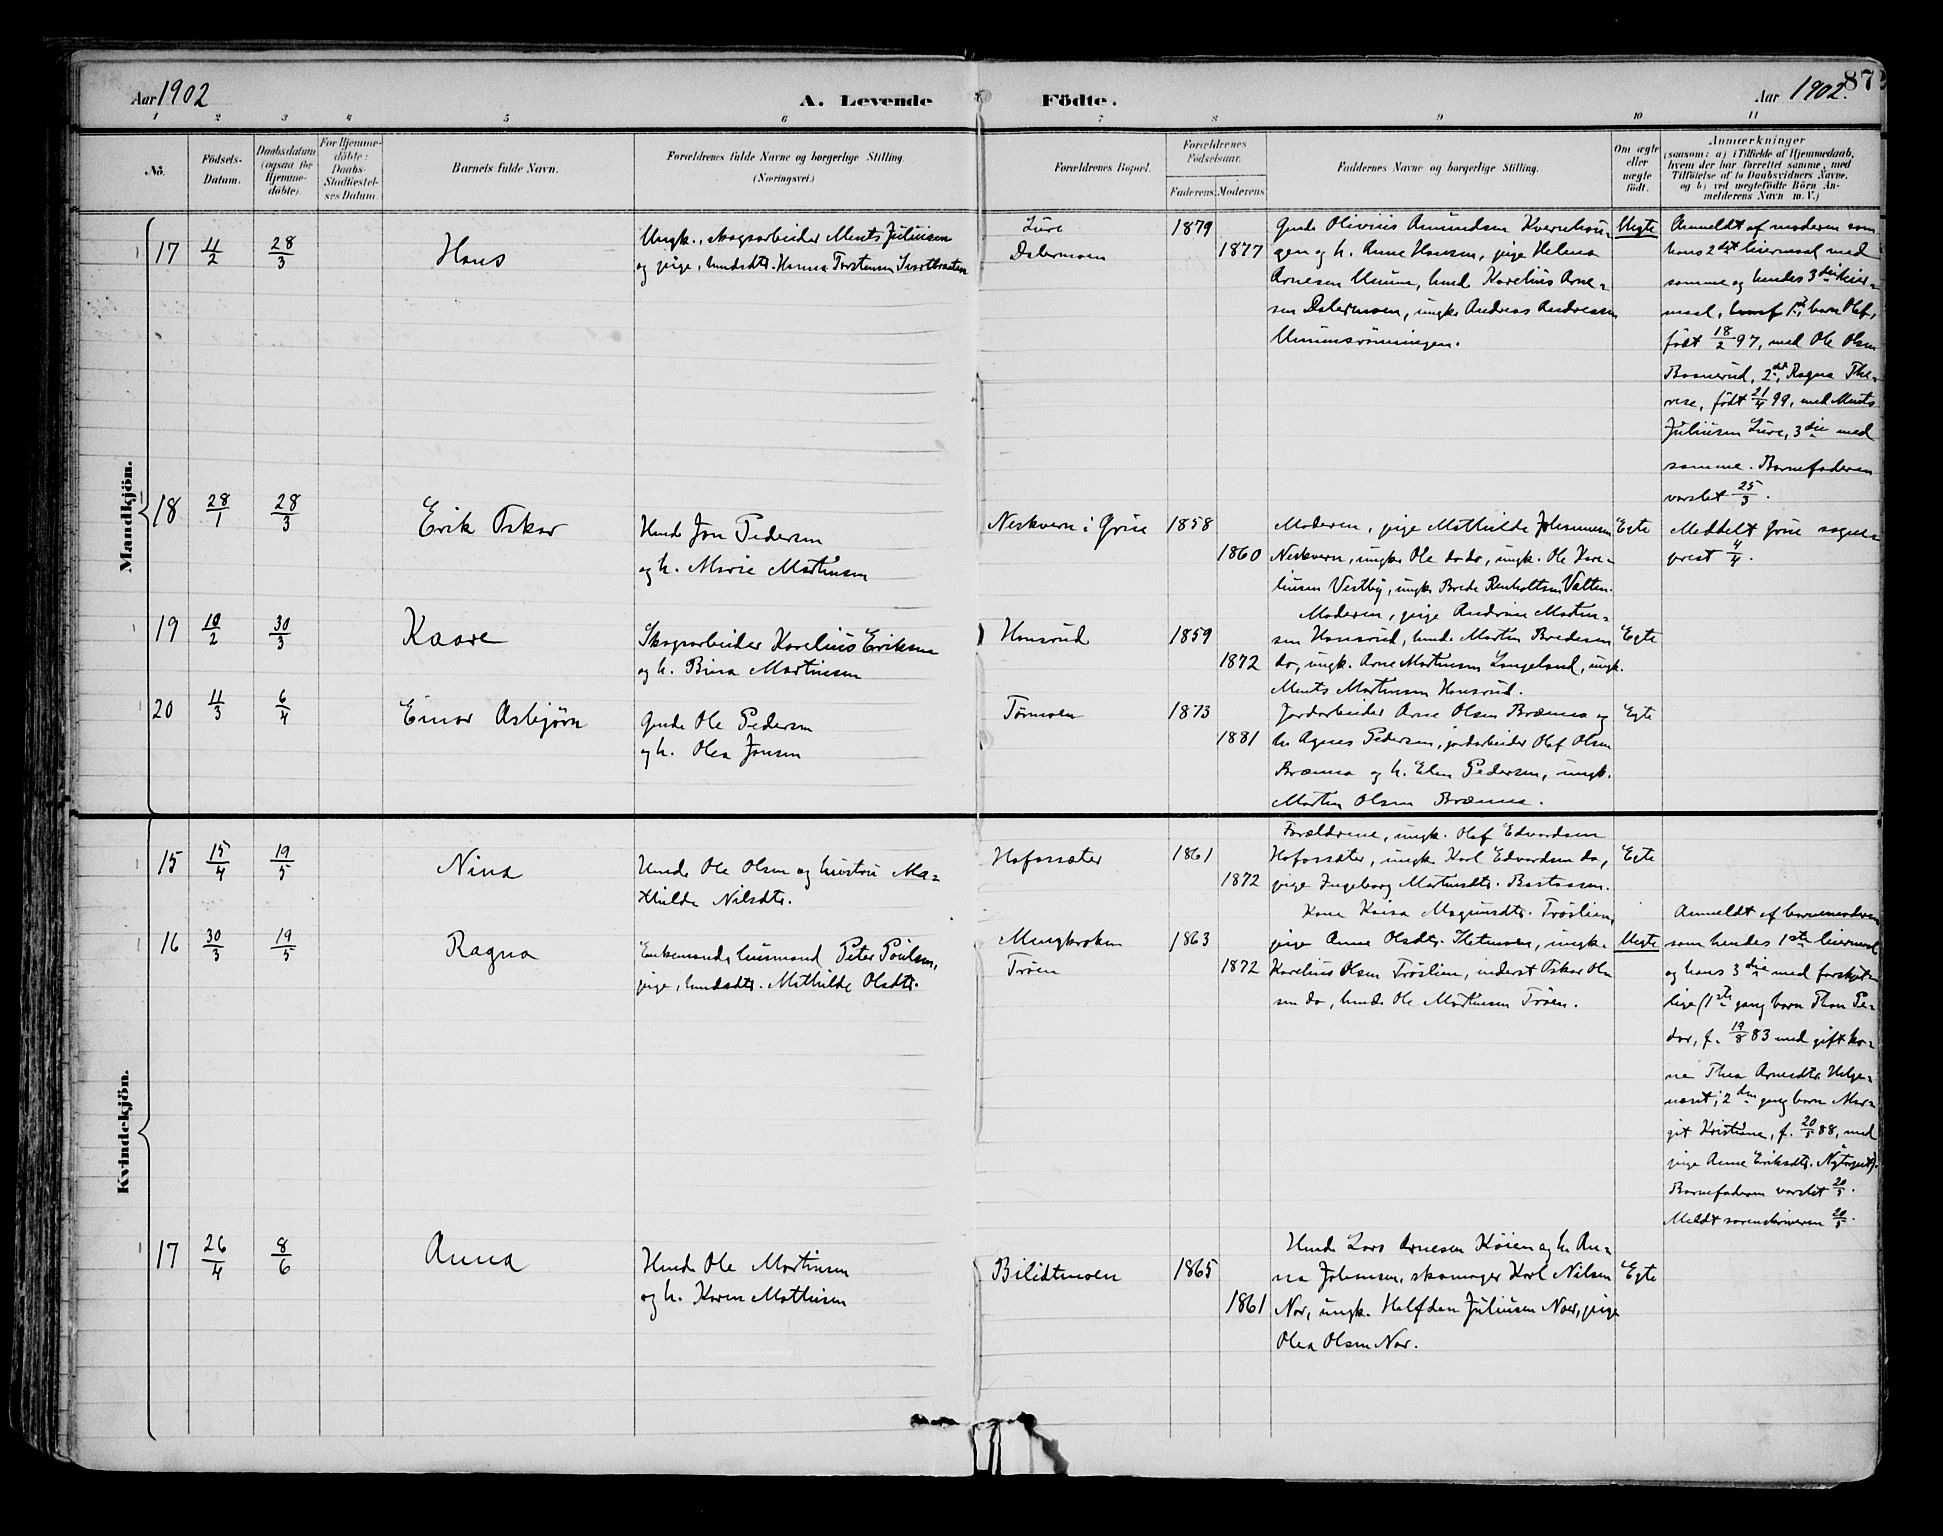 Aar 1902
A. Levende
Födte.
Aar 1902.
87
1 2 3 4 5 6 7 8 9 10 11
No.
Födsels-
Datum.
Daabsdatum
(ogsaa for
Hjemme-
döbte).
For Hjemme-
döbte:
Daabs-
Stadfæstel-
ses Datum.
Barnets fulde Navn.
Forældrenes fulde Navne og borgerlige Stilling.
(Næringsvei.)
Forældrenes Bopæl.
Forældrenes
Födselsaar.
Faderens.
Moderens.
Faddernes Navne og borgerlige Stilling.
Om ægte
eller
uægte
födt.
Anmærkninger
(saasom: a) i Tilfælde af Hjemmedaab,
hvem der har forrettet samme, med
Tilföielse af to Daabsvidners Navne,
og b) ved uægtefödte Börn An-
melderens Navn m. V.)
Mandkjön.
17
11/2
28/3
Hans
Ungk., skogsarbeider Ments Juliusen
og pige, husmdtr. Hanna Torstensen Svartbraaten
Lure
Dalermoen
1879
1877
Gmde Olivius Amundsen Kvernhau-
gen og h. Anne Hansen, pige Helena
Arnesen Unum, husmd Karelius Arne-
sen Dalermoen, ungk. Andreas Andreassen
Unumsrönningen.
Uegte
Anmeldt af moderen som
hans 2det leiermaal med
samme og hendes 3die leier-
maal, hvoraf 1st, barn Olaf,
födt 18/2 97, med Ole Olsen
Baanerud, 2det, Ragna The-
rese, födt 21/4 99, med Ments
Juliusen Lure, 3die med
samme. Barnefaderen
varslet 25/3.
18
28/1
28/3
Erik Oskar
Husmd Jon Pedersen
og h. Marie Martinsen
Neskvern i Grue
1858
1860
Moderen, pige Mathilde Johannesen
Neskvern, ungk. Ole do do, ungk. Ole Kare-
liusen Vestby, ungk. Brede Renholtsen Valten.
Egte
Meddelt Grue sogne-
prest 4/4.
19
10/2
30/3
Kaare
Skogsarbeider Karelius Eriksen
og h. Bina Martinsen
Hansrud
1859
1872
Moderen, pige Andrine Martin-
sen Hansrud, husmd. Martin Bredesen
do, ungk. Arne Martinsen Langeland, ungk.
Ments Martinsen Hansrud.
Egte
20
11/3
6/4
Einar Asbjørn
Gmde Ole Pedersen
og h. Olea Jonsen
Törmoen
1873
1881
Jordarbeider Arne Olsen Brænna og
h. Agnes Pedersen, jordarbeider Olaf Olsen
Brænna og h. Elen Pedersen, ungk.
Martin Olsen Brænna.
Egte
Kvindekjön.
15
15/4
19/5
Nina
Husmd Ole Olsen og hustru Ma-
thilde Nilsdtr.
Hofossæter
1861
1872
Forældrene, ungk. Olaf Edvardsen
Hofossæter, ungk. Karl Edvardsen do,
pige Ingeborg Martinsdtr. Bastaasen.
Egte
16
30/3
19/5
Ragna
Enkemand, husmand Peter Poulsen,
pige, husmdtr. Mathilde Olsdtr.
Mungkroken
Tröen
1863
1872
Kone Kaisa Magnusdtr. Tröslien,
pige Anne Olsdtr. Sletmoen, ungk.
Karelius Olsen Tröslien, inderst Oskar Ol-
sen do, husmd. Ole Martinsen Tröen.
Uegte
Anmeldt af barnemoderen
som hendes 1ste leiermaal
og hans 3die med forskjel-
lige (1ste gang barn Thon Pe-
der, f. 19/8 83 med gift ko-
ne Thea Arnesdtr. Helge-
næset; 2den gang barn Mar-
git Kristiane, f. 20/5 88, med
pige Anne Eriksdtr. Nytorpet).
Barnefaderen varslet 20/5.
Meldt sorenskriveren 20/5.
17
26/4
8/6
Anna
Husmd Ole Martinsen
og h. Karen Mathisen
Bilidtmoen
1865
1861
Husmd Lars Arnesen Köien og h. An-
na Johansen, skomager Karl Nilsen
Nor, ungk. Halfdan Juliusen Nor, pige
Olea Olsen Nor.
Egte